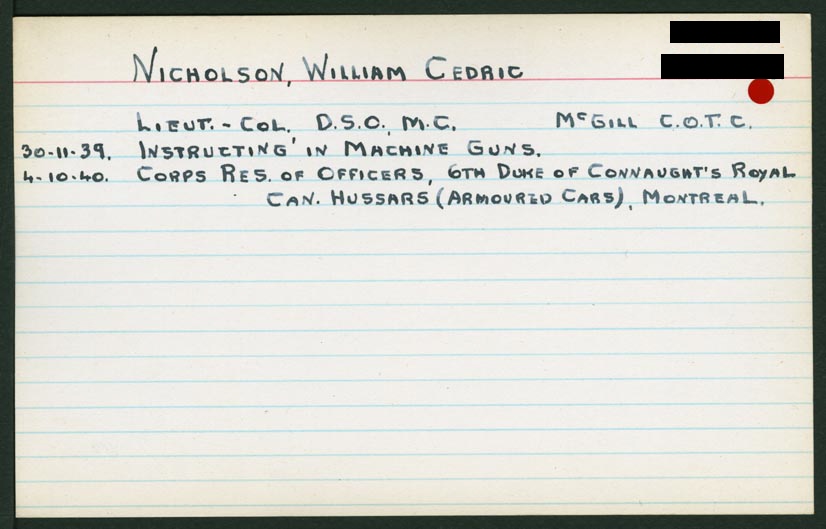 NICHOLSON, WILLIAM CEDRIC
LIEUT.-COL. D.S.O., M.C. McGILL C.O.T.C.
30-11-39. INSTRUCTING IN MACHINE GUNS.
4-10-40. CORPS RES. OF OFFICERS, 6TH DUKE OF CONNAUGHT'S ROYAL
CAN. HUSSARS (ARMOURED CARS), MONTREAL.